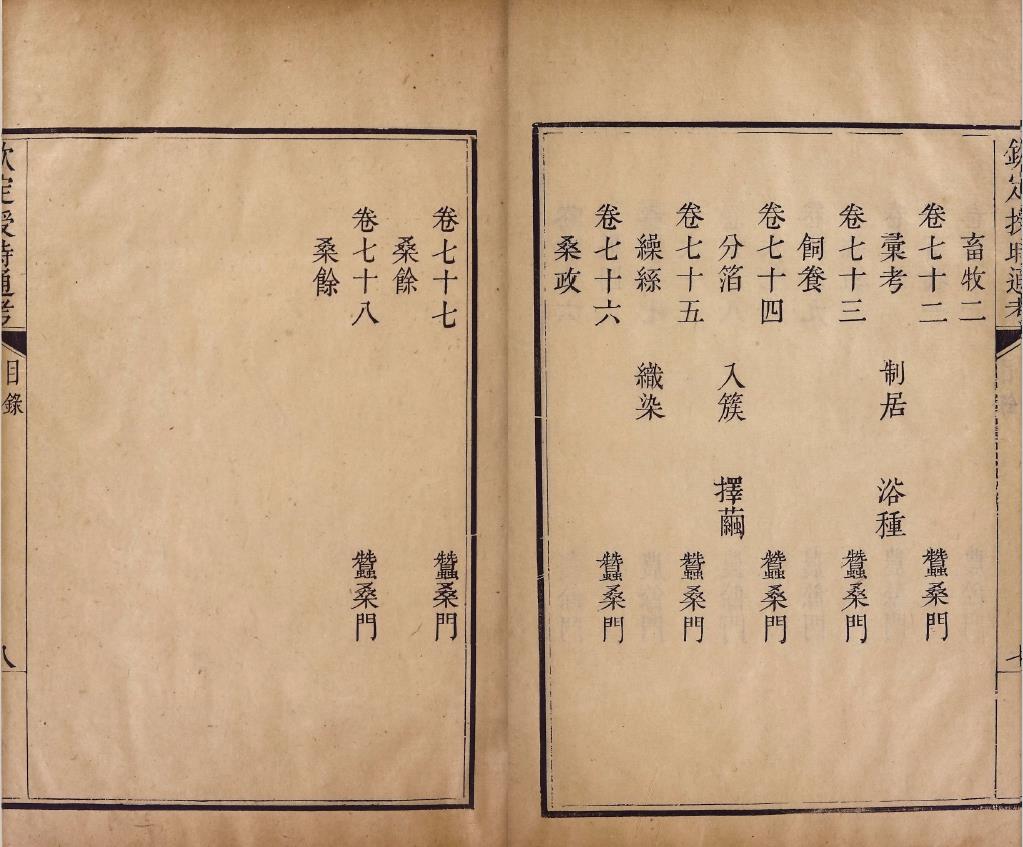 欽定授時通考
目錄
七
畜牧二
卷七十二 蠶桑門
彚考 制居 浴種
卷七十三 蠶桑門
飼養
卷七十四 蠶桑門
分箔 入簇 擇繭
卷七十五 蠶桑門
繰絲 織染
卷七十六 蠶桑門
桑政
卷七十七 蠶桑門
桑餘
卷七十八 蠶桑門
桑餘
欽定授時通考
目錄
八